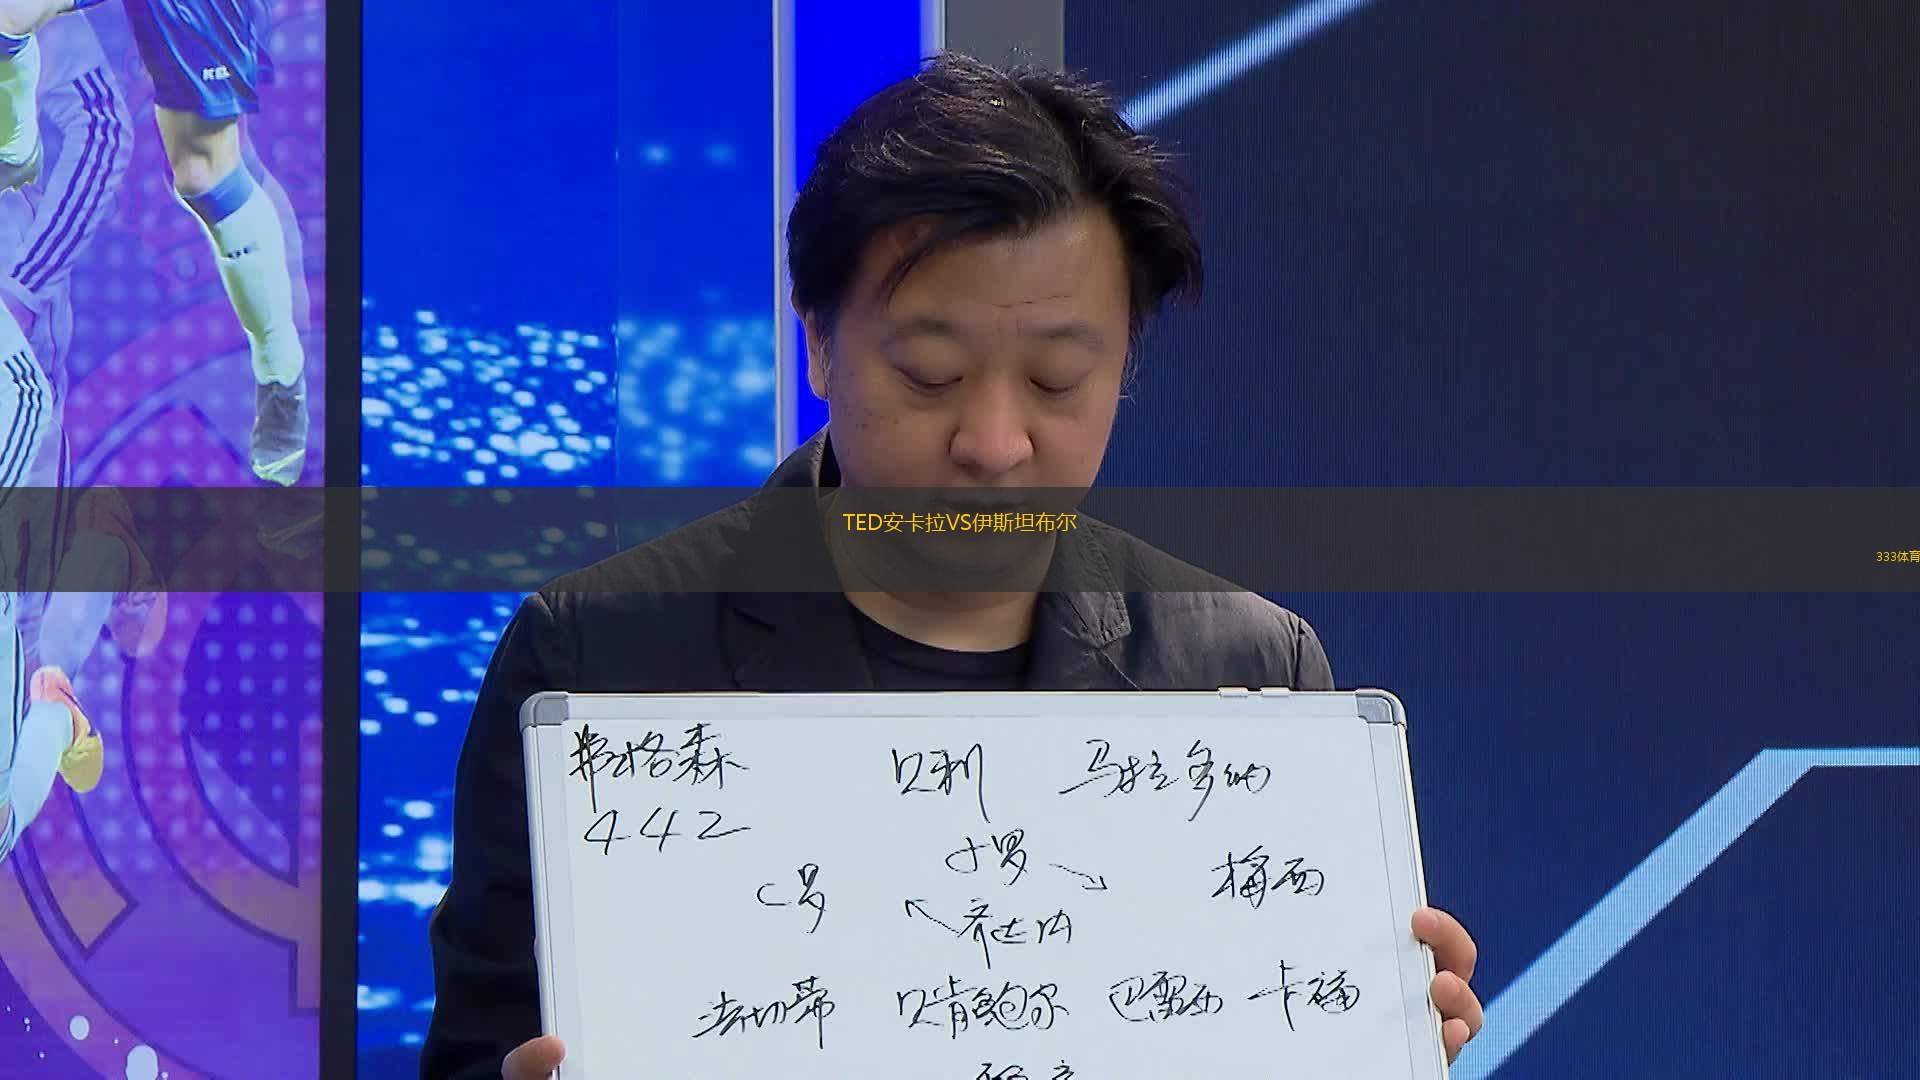 TED安卡拉VS伊斯坦布尔
333体育
弗格森 贝利 马拉多纳
442
小罗
C罗 梅西
齐达内
法切蒂 贝肯鲍尔 巴雷西 卡福